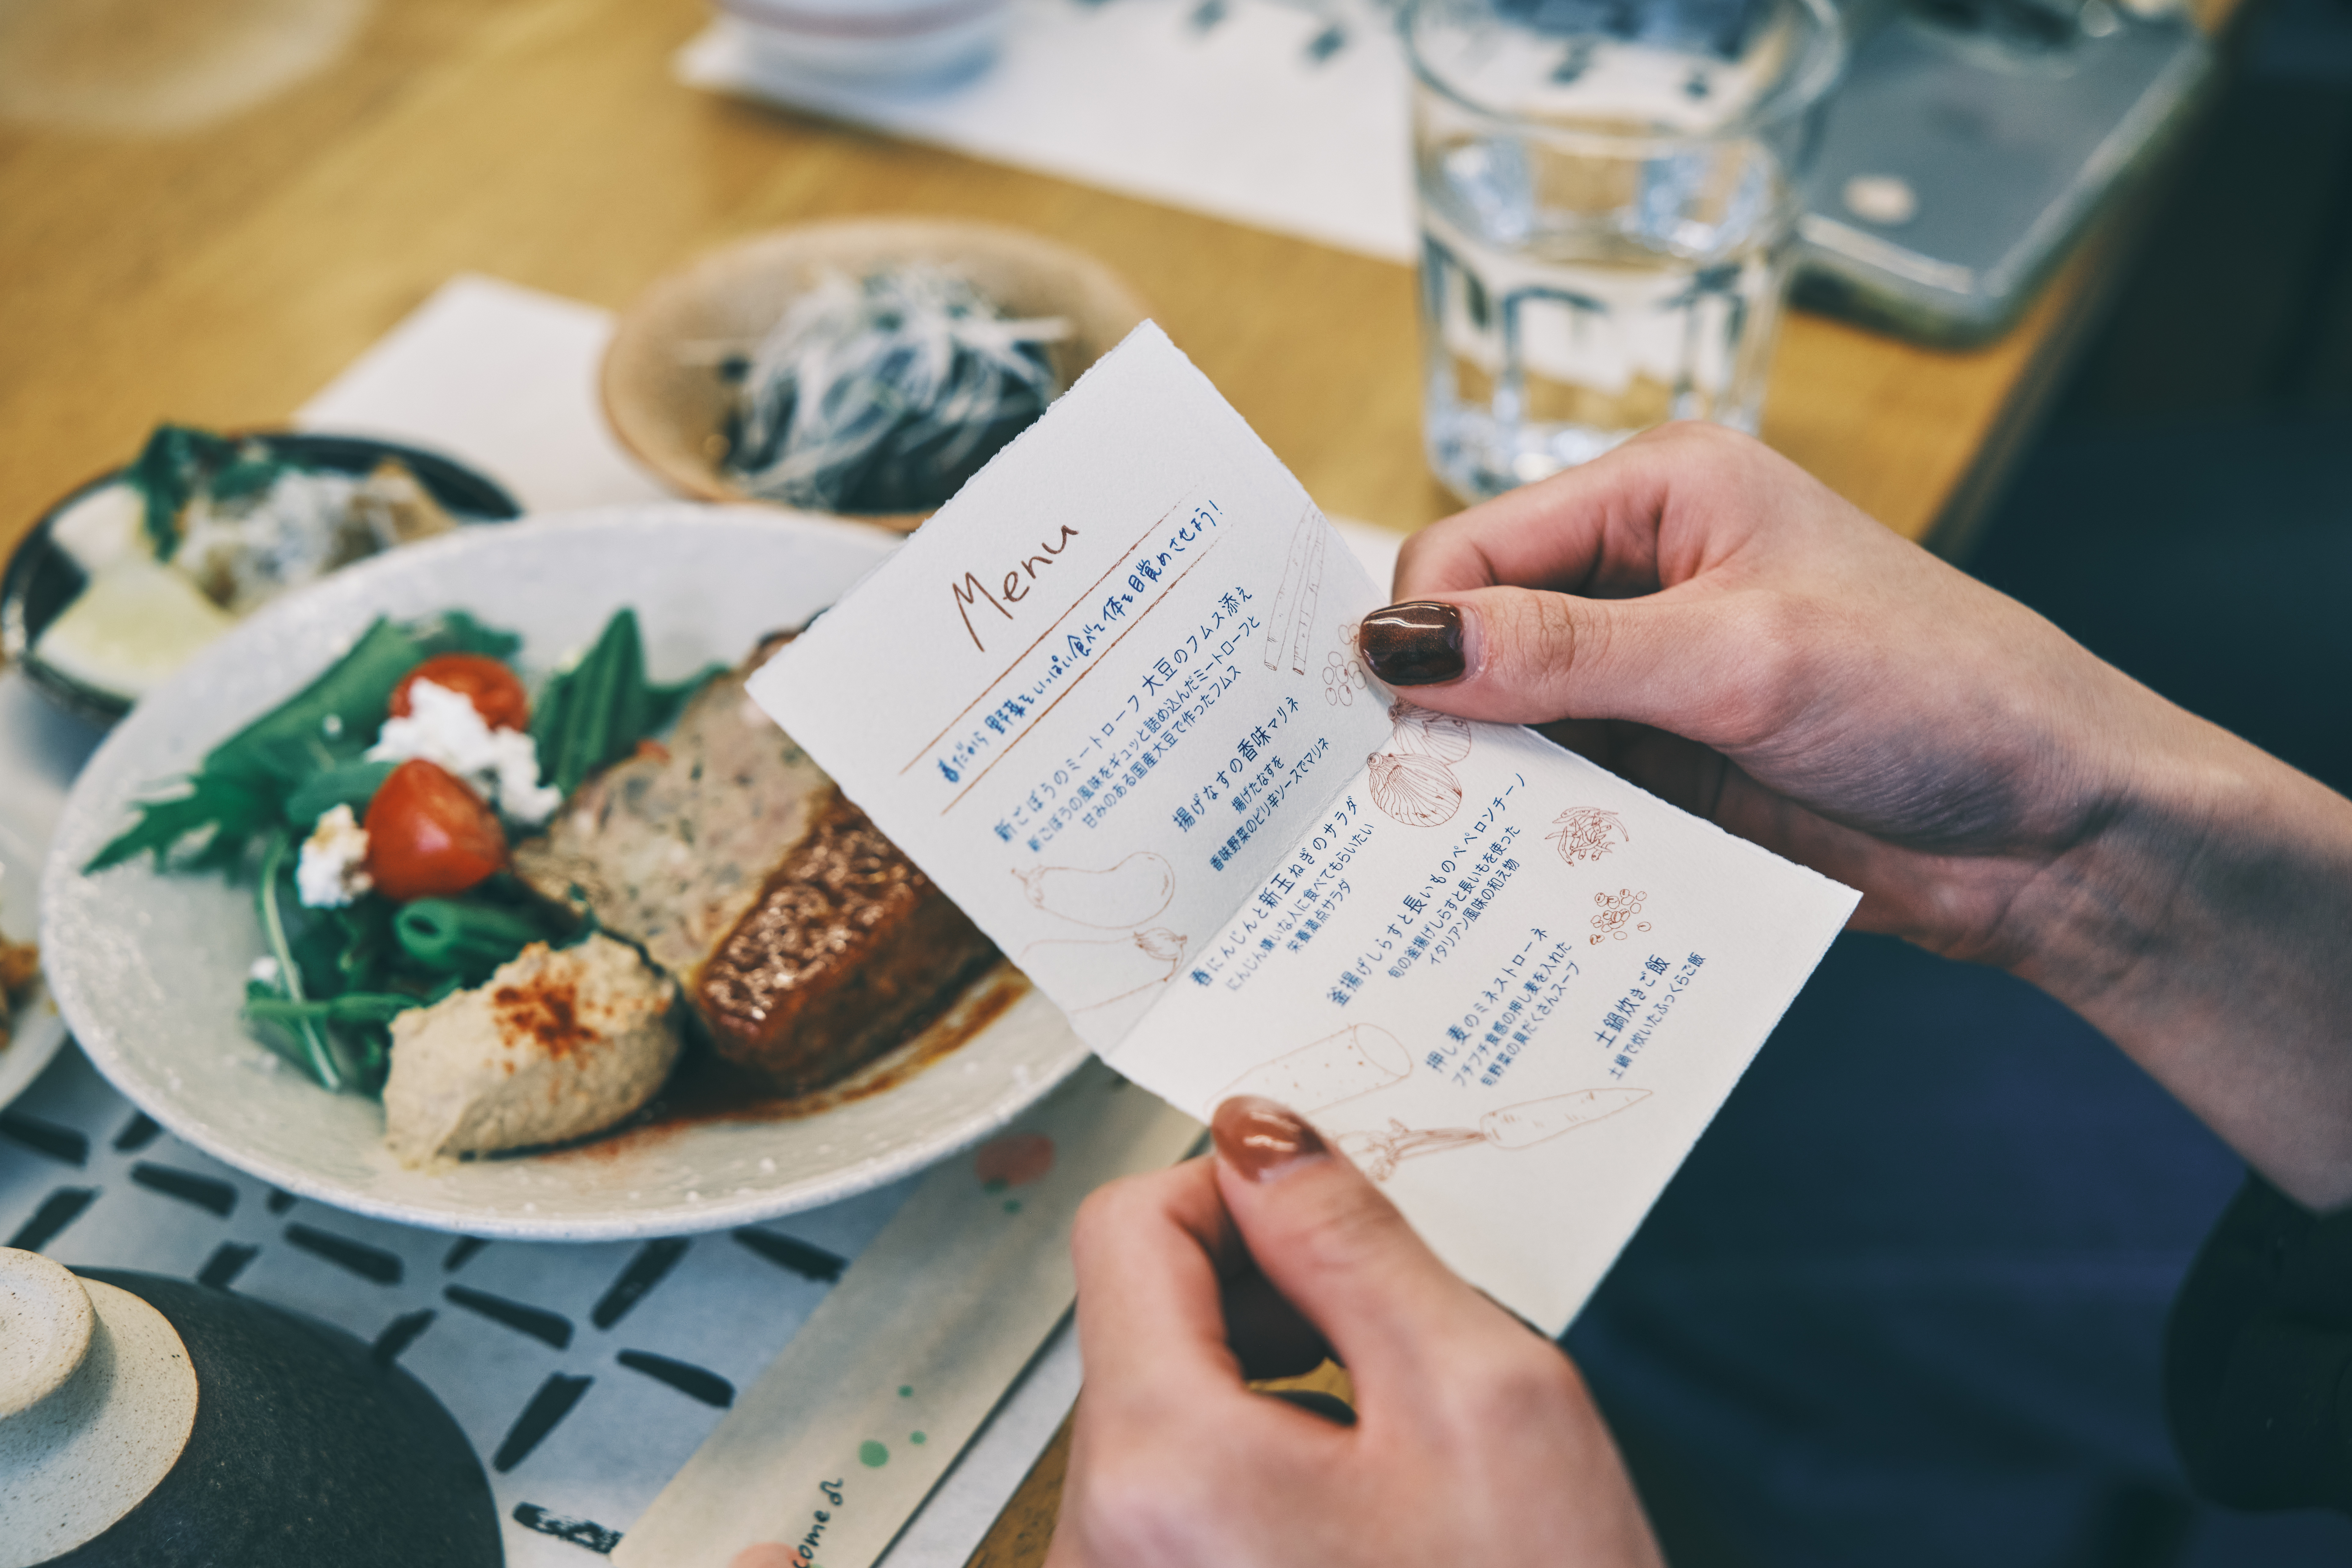 Menu
春だから野菜をいっぱい食べて体を目覚めさせよう!
新ごぼうのミートローフ 大豆のフムス添え
新ごぼうの風味をギュッと詰め込んだミートローフと
甘みのある国産大豆で作ったフムス
揚げなすの香味マリネ
揚げたなすを
香味野菜のピリ辛ソースでマリネ
春にんじんと新玉ねぎのサラダ
にんじん嫌いな人に食べてもらいたい
栄養満点サラダ
釜揚げしらすと長いものペペロンチーノ
旬の釜揚げしらすと長いもを使った
イタリアン風味の和え物
押し麦のミネストローネ
プチプチ食感の押し麦を入れた
旬野菜の具だくさんスープ
土鍋炊きご飯
土鍋で炊いたふっくらご飯
come♫